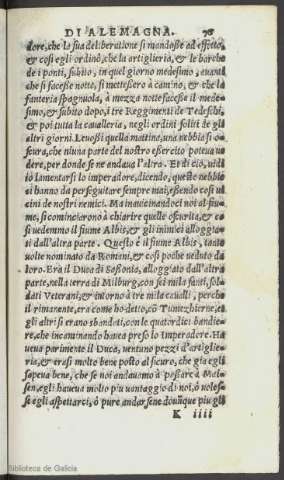 DI ALEMAGNA. 76
dore, che la sua deliberatione si mandasse ad effetto,
& cosi egli ordinò, che la artiglieria, & le barche
de i ponti, subito, in quel giorno medesimo, auanti
che si facesse notte, si mettesero à camino, & che la
fanteria spagnuola, à mezza notte facesse il mede-
simo, & subito dopo, i tre Regimenti de Tedeschi,
& poi tutta la caualleria, negli ordini soliti de gli
altri giorni. Leuossi quella mattina, una nebbia si o-
scura, che niuna parte del nostro esercito poteua ue-
dere, per donde se ne andaua l'altra. Et di ciò, udi
io lamentarsi lo imperadore, dicendo, queste nebbie
ci hanno da perseguitare sempre mai, essendo cosi ui
cini de nostri nemici. Ma auicinandoci noi al fiu-
me, si cominciarono à chiarire quelle oscurità, & co
si uedemmo il fiume Albis, & gli inimici alloggia-
ti dall'altra parte. Questo è il fiume Albis, tante
uolte nominato da Romani, & cosi poche ueduto da
loro. Era il Duca di Sassonia, alloggiato dall'altra
parte, nella terra di Milburg, con sei mila fanti, sol-
dati Veterani, & intorno à tre mila caualli, perche
il rimanente, era come ho detto, cō Tumezhierne, et
gli altri si erano sbandati, con le quatordici bandie-
re, che incaminando haueа preso lo Imperadore. Ha
ueua parimente il Duca, uentuno pezzi d'artiglie-
ria, & erasi molto bene posto al sicuro, che gia egli
sapeua bene, che se noi andauamo à passare à Mai-
sen, egli haueua molto piu uantaggio di noi, ò uoles-
se egli aspettarci, ò pure andar sene douunque piu gli
K iiii
Biblioteca de Galicia